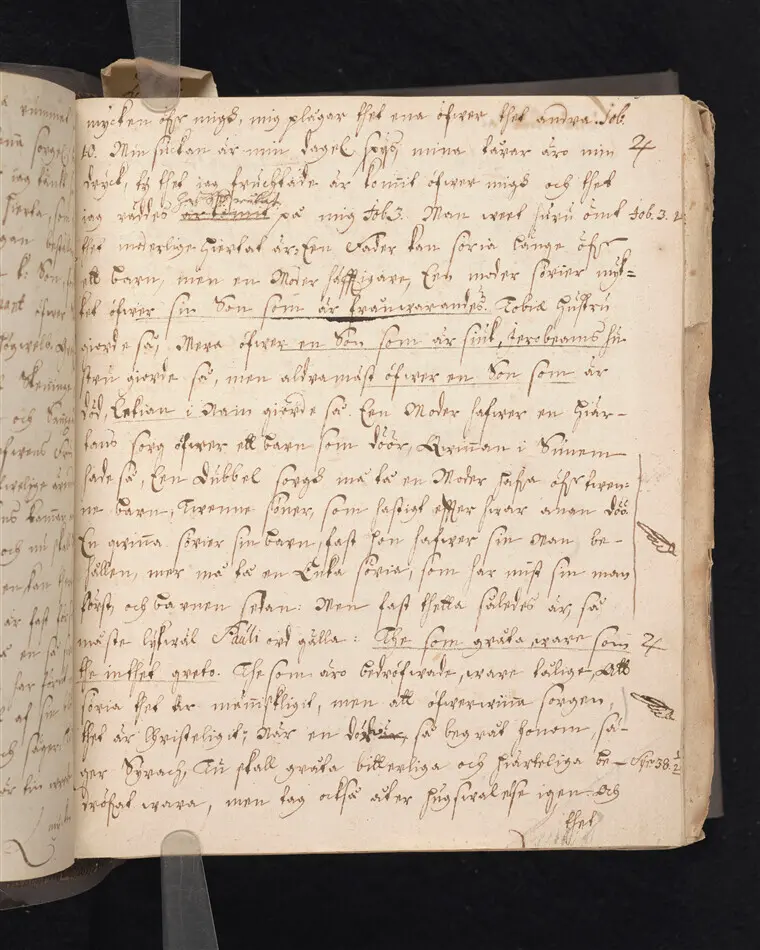 mÿcken öfr migh, mig plågar thet ena öfwer thet andra Job.
10. Min suckan är min dagel. spijs, mina tårar äro min
dryck, tÿ thet jag fruchtade är kom̃it öfwer migh och thet
jag räddes på mig Job 3. Man weet huru ömt Job. 3.
thet moderlige hiertat är; Een Fader kan söria länge öfr
ett barn, men en Moder häfftigare, Een moder sörier myc=
ket öfwer sin Son som är frånwarandes. Tobiæ hustru
giorde så, Mera öfwer en Son som är siuk, Jerobeams hu
stru giorde så, men aldramäst öfwer en Son som är
död, Enkian i Nain giorde så. Een Moder hafwer en hiär-
tans sorg öfwer ett barn som döör, Qwin̄an i Sunem
hade så, Een dubbel sorgh må tå en Moder hafva öfr twen-
ne barn, Twenne söner, som hastigt effter hwar annan döö
En qwin̄a sörier sin barn, fast hon hafwer sin Man be-
hållen, mer må tå en Enka söria, som har mist sin man
först, och barnen sedan: Men fast thetta således är, så
måste lykwäl Pauli ord gälla: The som gråta, ware som
the inthet greto. The som äro bedröfwade, ware tålige, Att
söria thet är män̄iskligit, men att öfwerwin̄a sorgen,
thet är Christeligit; När en döör, så begråt honom, sä-
ger Syrach, Tu skall gråta bitterliga och hiärteliga be- Syr 38.
dröfwat wara, men tag också åter hugswalelse igen. och
thet